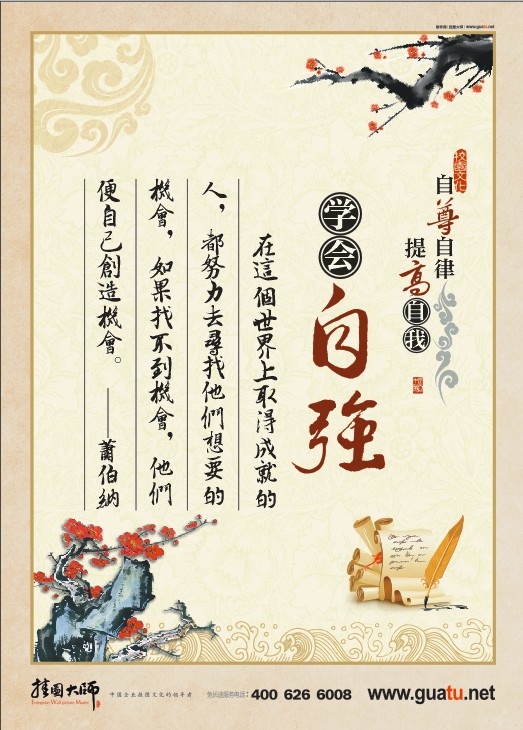 www.guatu.net
校园文化
自尊自律
提高自我
学会
自強
在這個世界上取得成就的
人，都努力去尋找他們想要的
機會，如果找不到機會，他們
便自己創造機會。——蕭伯納
挂图大师
中国企业挂图文化的领导者
免长途服务电话：400 626 6008
www.guatu.net